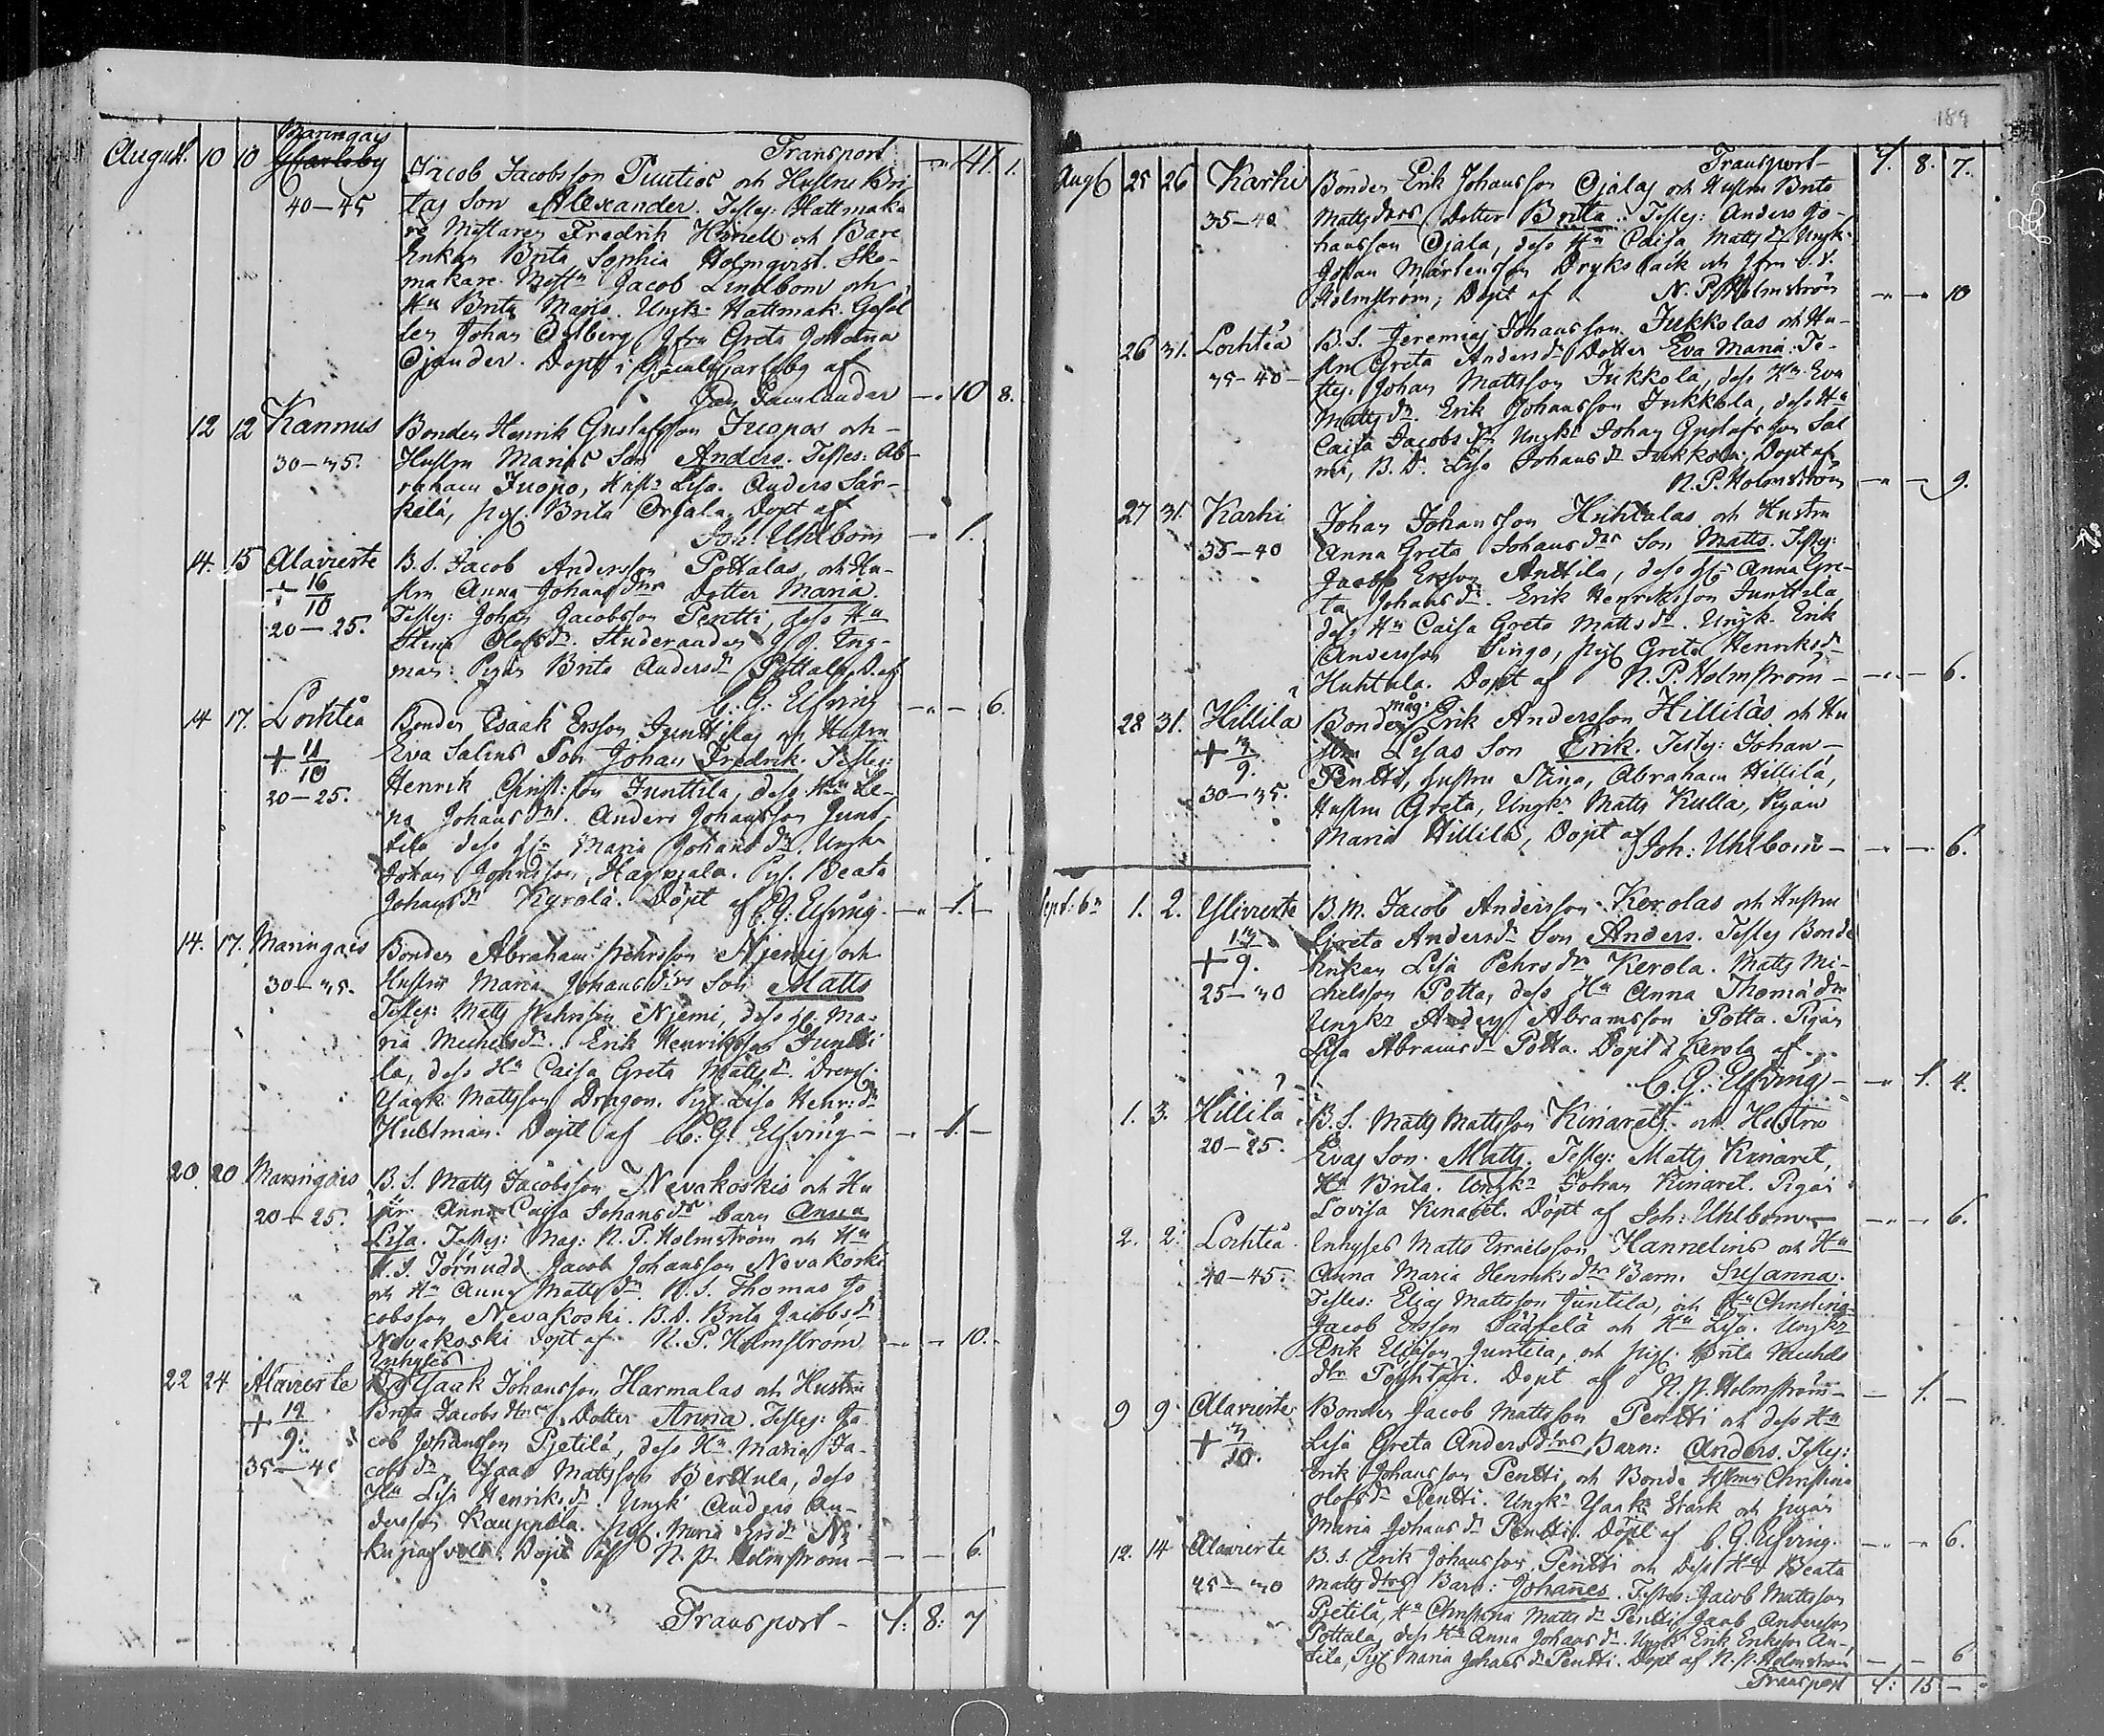 Transport — 41. 1.
August. 10 10 Maringais Jacob Jacobsson Puutios och Hustru Bri
Gcarleby
40—45 tas Son Alexander. Testes: Hattmaka
re Mästaren Fredrik Honell och Bare
Enkan Brita Sophia Holmqvist. Sko-
makare Mäst:n Jacob Lindbom och
H:u Brita Maria. Ungk: Hattmak. Gesäl
len Johan Östberg Jfru Greta Johanna
Ojander. Döpt i Gamlacarleby af
— 10 8.
12 12 Kannus Bonden Henrik Gustafsson Juopos och
30—35. Hustru Marias Son Anders. Testes: Ab-
raham Juopo, Hust: Lisa. Anders Sär-
kelä, pig. Brita Orjala. Döpt af
Joh: Uhlbom — 1.
14. 15 Alavierte B.S. Jacob Andersson Pottalas, och Hu-
+ 16/10 stru Anna Johansdrs Dotter Maria.
20—25. Testes: Johan Jacobsson Pentti, dess H:u
Stina Olofsdr. Studeranden J. J. Eng-
man: Pigan Brita Andersdr Pottala. D. af
C. G: Elfving — — 6.
14 17. Lochteå Bonden Esaak Ersson Junttilas och Hustru
+ 11/10 Eva Salins Son Johan Fredrik. Testes:
20—25. Henrik Christ:son Junttila, dess H:u Le-
na Johansdr. Anders Johansson Junt
tila dess H:u Maria Johansdr. Ungk:
Johan Johansson Haapjala. Pig. Beata
Johansdr Kyrölä. Döpt af C. G: Elfving. — 1. —
14. 17. Maringais Bonden Abraham Pehrsson Niemis och
30—35. Hustru Maria Johansdrs Son Matts
Testes: Matts Pehrsson Niemi, dess H: Ma-
ria Michelsdr. Erik Henriksson Juntti
la, dess H:u Caisa Greta Mattsdr. Dreng.
Isaak Mattsson Dragon. Pig. Lisa Henr:dr
Hultman. Döpt af C. G: Elfving — — 1. —
20. 20 Maringais B.S. Matts Jacobsson Nevakoskis och Hu
20—25. stru Anna Caisa Johansdrs barn Anna
Lisa. Testes: Mag: N. P. Holmström och H:u
M. S. Törnudd. Jacob Johansson Nevakoski
och H:u Anna Mattsdr. B.S. Thomas Ja
cobsson Nevakoski. B.D. Brita Jacobsdr
Nevakoski Döpt af N. P. Holmström — — 10. —
Enhyses
22 24 Alavierte Isaak Johansson Harmalas och Hustru
+ 19/9. Brita Jacobsdtrs Dotter Anna. Testes: Ja
cob Johansson Pjetilä, dess H:u Maria Ja-
35—40 cobsdr Isaac Mattsson Berttula, dess
H:u Lisa Henriksdr. Ungk: Anders An-
dersson Kauppila. pig. Maria Ersdr
Döpt af N. P. Holmström — — — 6.
Transport — 4: 8: 7
189
Transport — 4. 8. 7.
Aug 25 26 Karhi Bonden Erik Johansson Ojalas och Hustru Brita
35—40 Mattsdtrs Dotter Brita. Testes: Anders Jo-
hansson Ojala, dess H:u Caisa Mattsdr Ungk:
Johan Mårtensson Dryksbäck och Jfru
Holmström, Döpt af N. P. Holmström — — 10
26 31. Lochteå B.S. Jeremias Johansson Jukkolas och Hu-
35—40 stru Greta Andersdr Dotter Eva Maria. Te-
stes. Johan Mattsson Jukkola, dess H:u Eva
Mattsdr. Erik Johansson Jukkola, dess H:u
Caisa Jacobsdr Ungk: Johan Gustafsson Sal
mi, B.D. Lisa Johansdr Jukkola. Döpt af
N. P. Holmström — — 9.
27 31. Karhi Johan Johansson Huhtalas och Hustru
35—40 Anna Greta Johansdrs Son Matts. Testes:
Jacob Ersson Anttila, dess H: Anna Gre-
ta Johansdr. Erik Henriksson Junttila
dess H:u Caisa Greta Mattsdr. Ungk. Erik
Andersson Pingo, pig Greta Henriksdr
Huhtala. Döpt af N. P. Holmström — — — 6.
28 31. Hillilä Bonde måg: Erik Andersson Hilliläs och Hu
+ 3/9. stru Lisas Son Erik. Testes: Johan
30—35. Pentti, hustru Stina, Abraham Hillilä,
Hustru Greta, Ungk: Matts Kulla, Pigan
Maria Hillilä, Döpt af Joh: Uhlbom — — — 6.
Sept:br 1. 2. Ylivierte B.M. Jacob Andersson Kerolas och Hustru
+ 13/9. Greta Andersdr Son Anders. Testes Bonde
25—30 Enkan Lisa Pehrsdr Kerola. Matts Mi-
chelsson Potta, dess H:u Anna Thomädtr
Ungk: Anders Abramsson Potta. Pigan
Lisa Abramsdr Potta. Döpt i Kerola af
C. G: Elfving — — 1. 4.
1. 3. Hillilä B.S. Matts Mattsson Kinarets och Hustru
20—25. Evas Son Matts. Testes: Matts Kinaret,
H:u Brita. Ungk: Johan Kinaret. Pigan
Lovisa Kinaret. Döpt af Joh: Uhlbom — — — 6.
2. 2. Lochteå Enhyses Matts Israelsson Hannelins och H:u
40—45. Anna Maria Henriksdtrs Barn. Susanna.
Testes: Elias Mattsson Juntila, och H:u Christina
Jacob Ersson Pääsielä och H:u Lisa. Ungk:
Erik Eliasson Juntila, och pig. Brita Michels
dtr Pöyhtäri. Döpt af N. P. Holmström — — 1. —
9 9 Alavierte Bonden Jacob Mattsson Pentti och dess H:u
+ 3/10. Lisa Greta Andersdtrs Barn: Anders. Testes:
Erik Johansson Pentti, och Bonde Hustrun Christina
Olofsdr Pentti. Ungk: Isaak Stark och pigan
Maria Johansdr Pentti. Döpt af C. G. Elfving. — — 6.
12. 14 Alavierte B.S. Erik Johansson Pentti och Dess H:u Beata
25—30 Mattsdtrs Barn: Johannes. Testes: Jacob Mattsson
Pjetilä, H:u Christina Mattsdr Pentti, Jacob Andersson
Pottala, dess H:u Anna Johansdr. Ungk: Erik Eriksson An-
tila, Pig. Maria Johansdr Pentti. Döpt af N. P. Holmström — — 6
Transport 4: 15 —